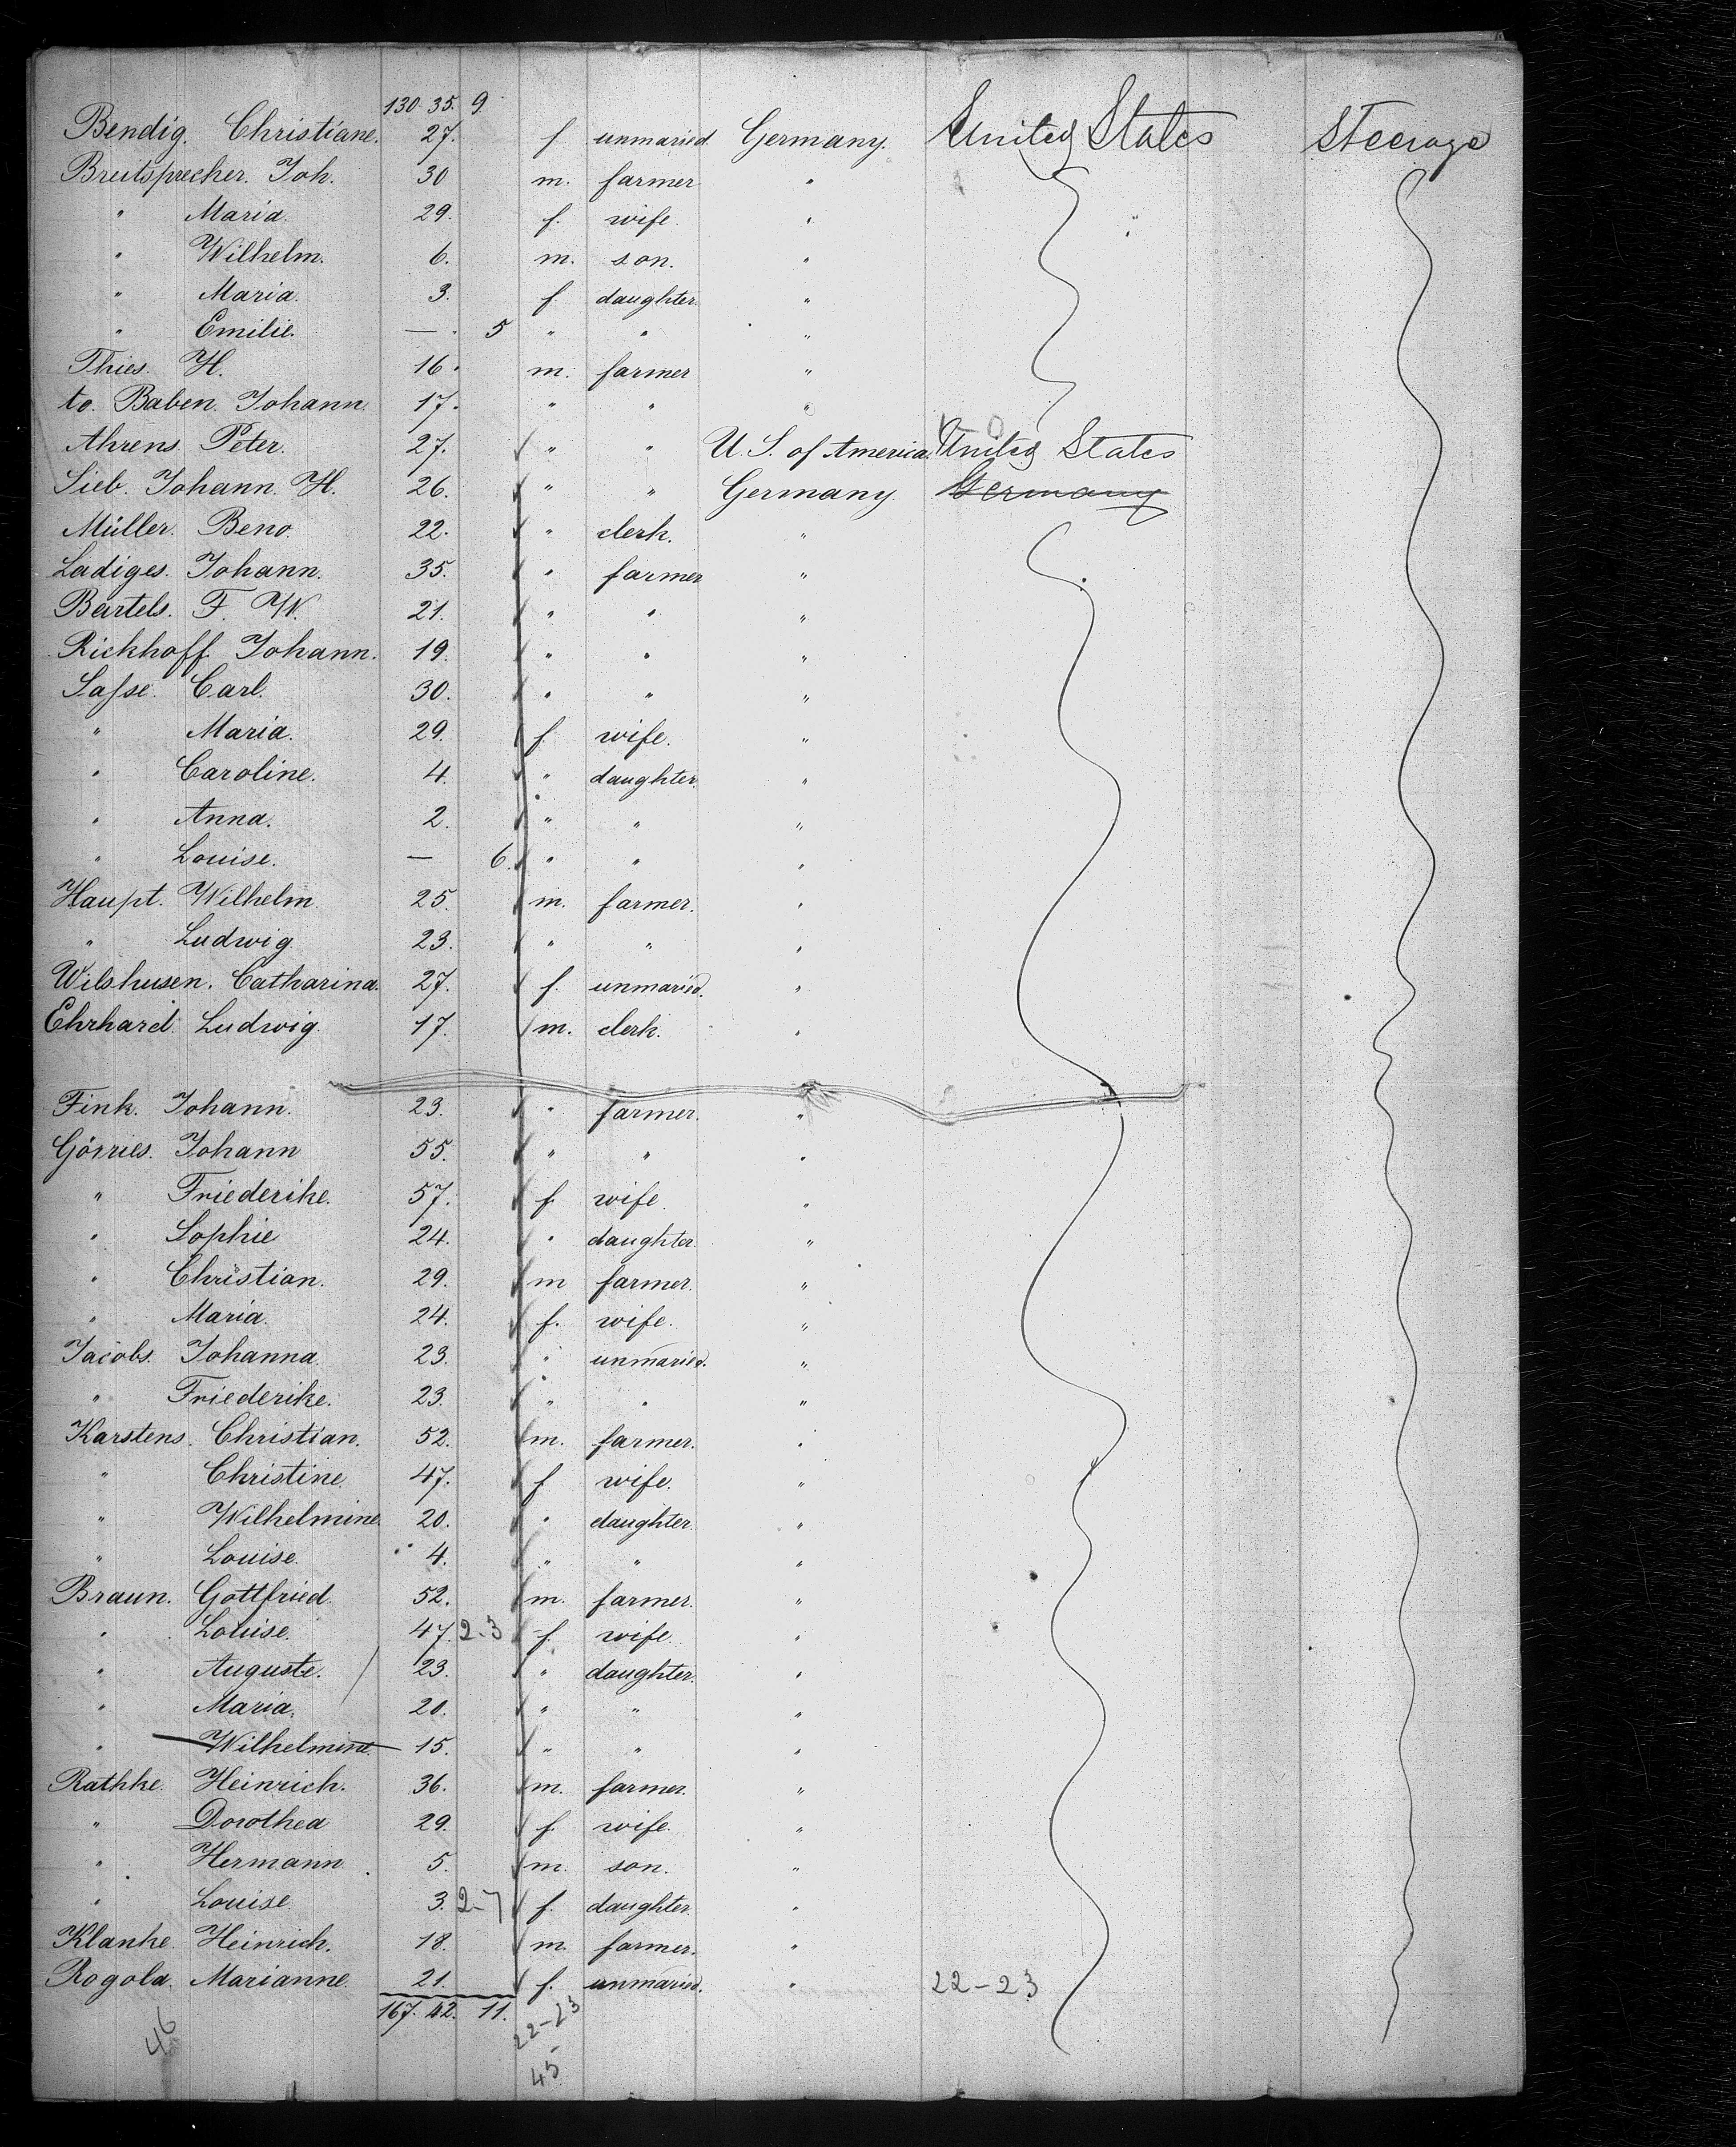 130. 35. 9.
Bendig. Christiane. 27. f unmaried. Germany. United States Steerage
Breitsprecher. Joh. 30 m. farmer "
" Maria. 29. f. wife. "
" Wilhelm. 6. m. son. "
" Maria. 3. f daughter. "
" Emilie. — 5 " " "
Thies. H. 16. m. farmer "
to. Baben. Johann. 17. " " "
Ahrens. Peter. 27. " " U. S. of America. United States
Sieb. Johann. H. 26. " " Germany. Germany
Müller. Beno. 22. " clerk. "
Ladiges. Johann. 35. " farmer "
Bartels. F. W. 21. " " "
Rickhoff. Johann. 19. " " "
Saſse. Carl. 30. " " "
" Maria. 29. f wife. "
" Caroline. 4. " daughter. "
" Anna. 2. " " "
" Louise. — 6. " " "
Haupt. Wilhelm. 25. m. farmer. "
" Ludwig. 23. " " "
Wilshusen. Catharina. 27. f. unmaried. "
Ehrhard. Ludwig. 17. m. clerk. "
Fink. Johann. 23. " farmer. "
Görries. Johann 55. " " "
" Friederike. 57. f. wife. "
" Sophie 24. " daughter. "
" Christian. 29. m farmer. "
" Maria. 24. f. wife. "
Jacobs. Johanna. 23. " unmaried. "
" Friederike. 23. " " "
Karstens. Christian. 52. m. farmer. "
" Christine. 47. f wife. "
" Wilhelmine. 20. " daughter. "
" Louise. 4. " " "
Braun. Gottfried. 52. m. farmer. "
" Louise. 47. 2-3 f. wife. "
" Auguste. 23. " daughter. "
" Maria. 20. " " "
" Wilhelmine. 15. " " "
Rathke. Heinrich. 36. m. farmer. "
" Dorothea 29. f. wife. "
" Hermann. 5. m. son. "
" Louise. 3. 2-7 f. daughter. "
Klanke. Heinrich. 18. m. farmer. "
Rogola. Marianne. 21. f. unmaried. " 22-23
167. 42. 11. 22-23
46
45